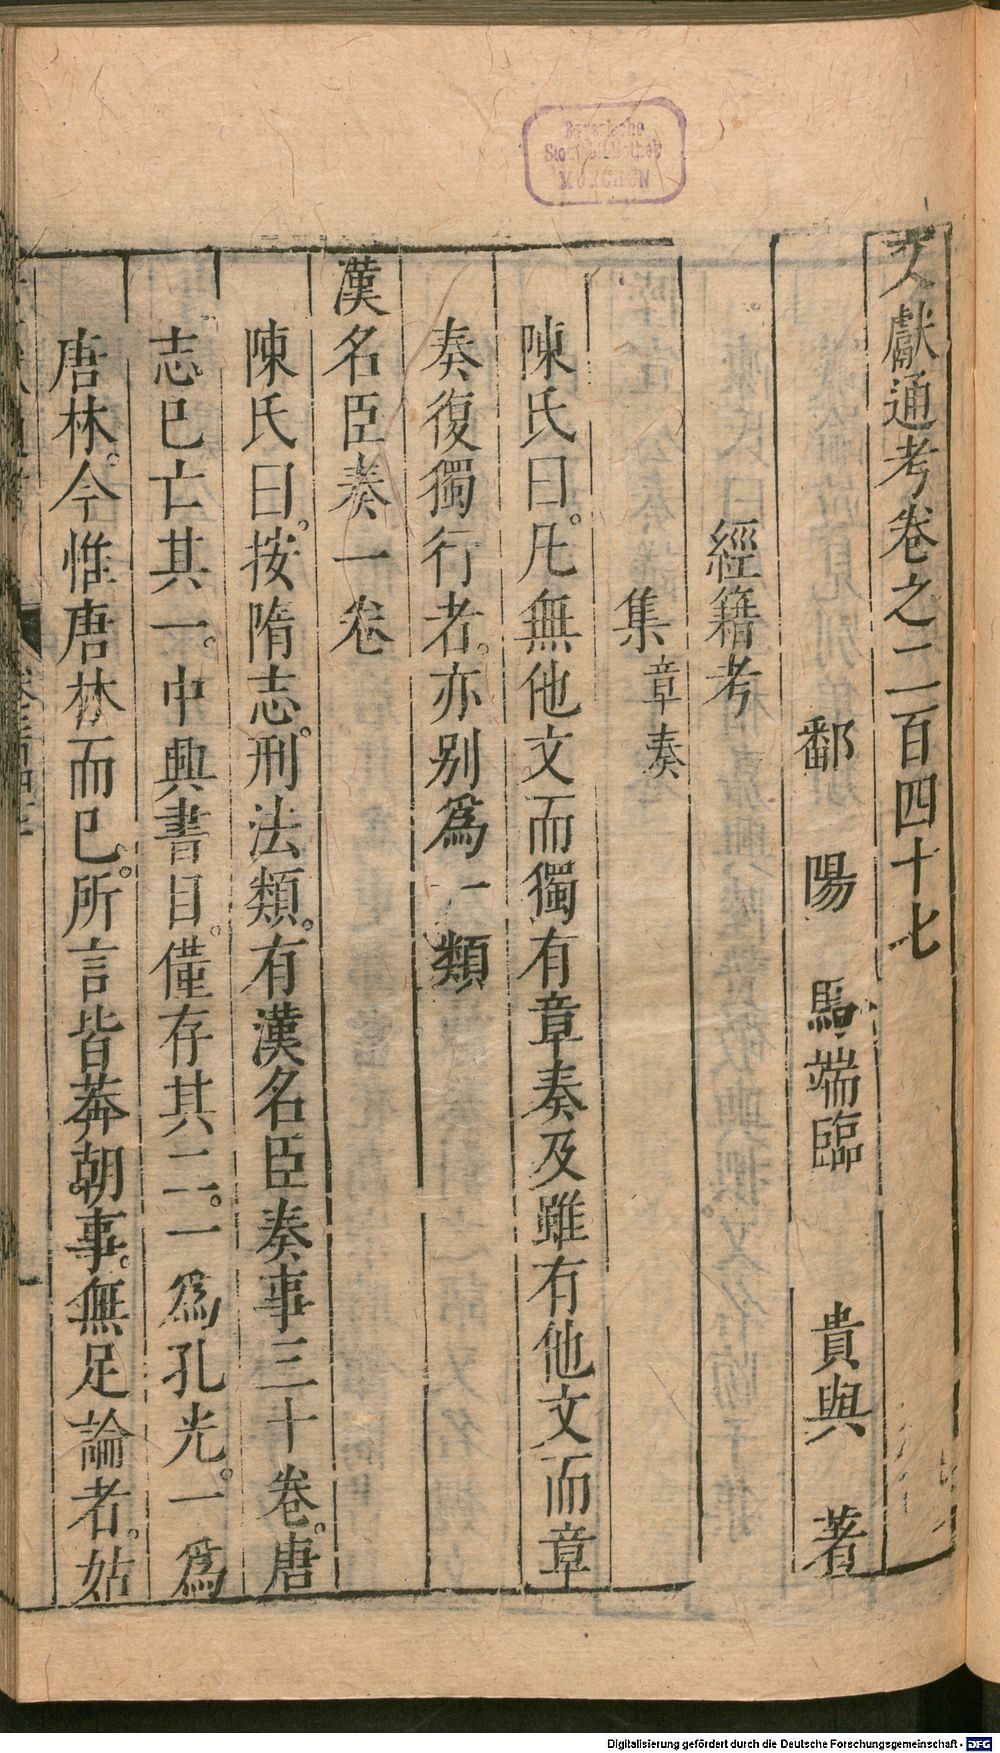 文獻通考卷之二百四十七
鄱陽 馬端臨 貴與 著
經籍考
集 章奏
陳氏曰。凡無他文而獨有章奏及雖有他文而章
奏復獨行者。亦别爲一類
漢名臣奏一卷
陳氏曰。按隋志。刑法類。有漢名臣奏事三十卷。唐
志已亡其一。中興書目。僅存其二。一爲孔光。一爲
唐林。今惟唐林而已。所言皆莽朝事。無足論者。姑
Bayerische
Staatsbibliothek
MÜNCHEN
Digitalisierung gefördert durch die Deutsche Forschungsgemeinschaft - DFG